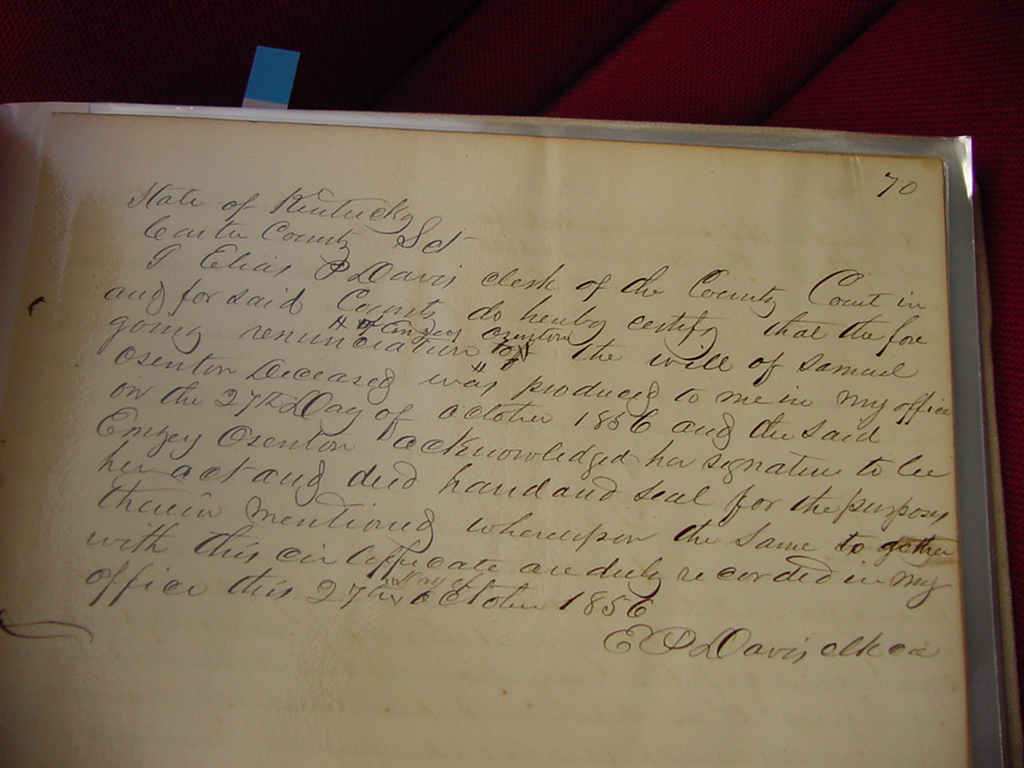 70
State of Kentucky
Carter County Sct
I Elias P Davis clerk of the County Court in
and for said County do hereby certify that the fore
of Emzey Osenton
going renunciation to the will of Samuel
Osenton Deceased was produced to me in my office
on the 27th Day of October 1856 and the said
Emzey Osenton acknowledged her signature to be
her act and deed hand and seal for the purposes
therein mentioned whereupon the same to gether
with this certifficate are duly recorded in my
Day of
office this 27th October 1856
E P Davis clk